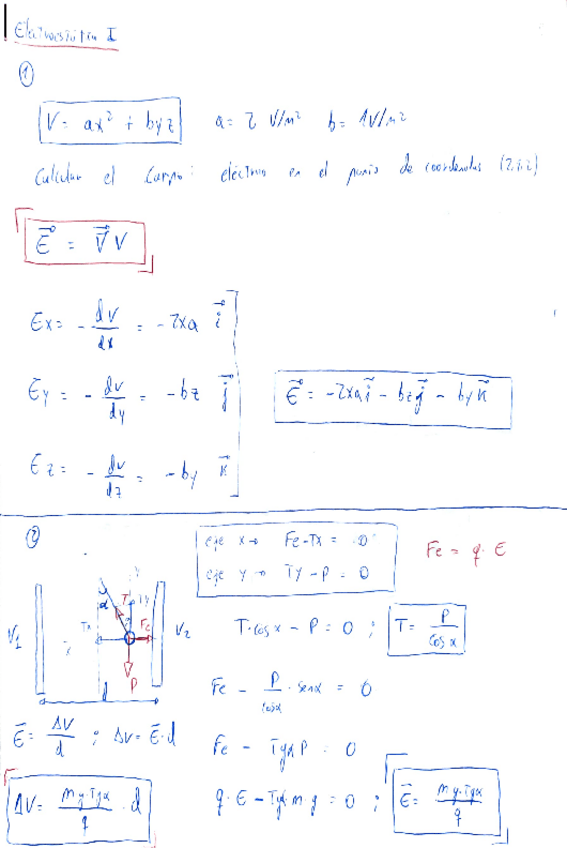 Electrostática I
①
V = ax² + byz a = 2 V/m² b = 1V/m²
Calcular el Campo: eléctrico en el punto de coordenadas (2,1,2)
E⃗ = ∇⃗ V
Ex = - dV/dx = -2xa i⃗
Ey = - dv/dy = -bz j⃗
E⃗ = -2xa i⃗ - bz j⃗ - by k⃗
Ez = - dv/dz = -by k⃗
②
eje x → Fe-Tx = 0
eje y → Ty - P = 0
Fe = q · E
α T Ty
V1 Tx Fe V2
x
P
d
T·cosx - P = 0 ; T = P/cosx
Fe - P/cosα · senα = 0
E⃗ = ΔV/d ; ΔV = E⃗·d
Fe - TgαP = 0
ΔV = mg·Tgα/q · d
q · E - Tgα·mg = 0 ; E⃗ = mg·Tgα/q